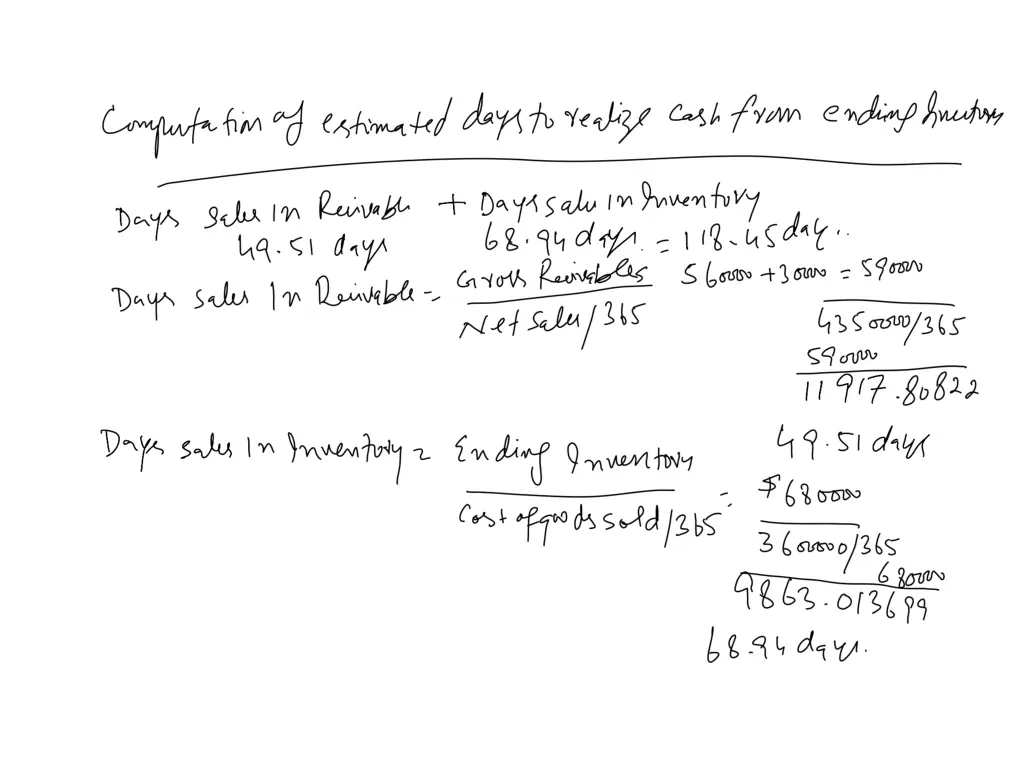 Computation of estimated days to realize cash from ending Inventory
Days sales in Reivable + Days sales in Inventory
49.51 days 68.94 days = 118.45 day..
Days sales In Reivable = Gross Reivables / Net Sales/365
560000 + 30000 = 590000
4350000/365
590000
11917.80822
49.51 days
Days sales In Inventory = Ending Inventory / Cost of goods sold/365 = $680000
3600000/365
680000
9863.013699
68.94 days.